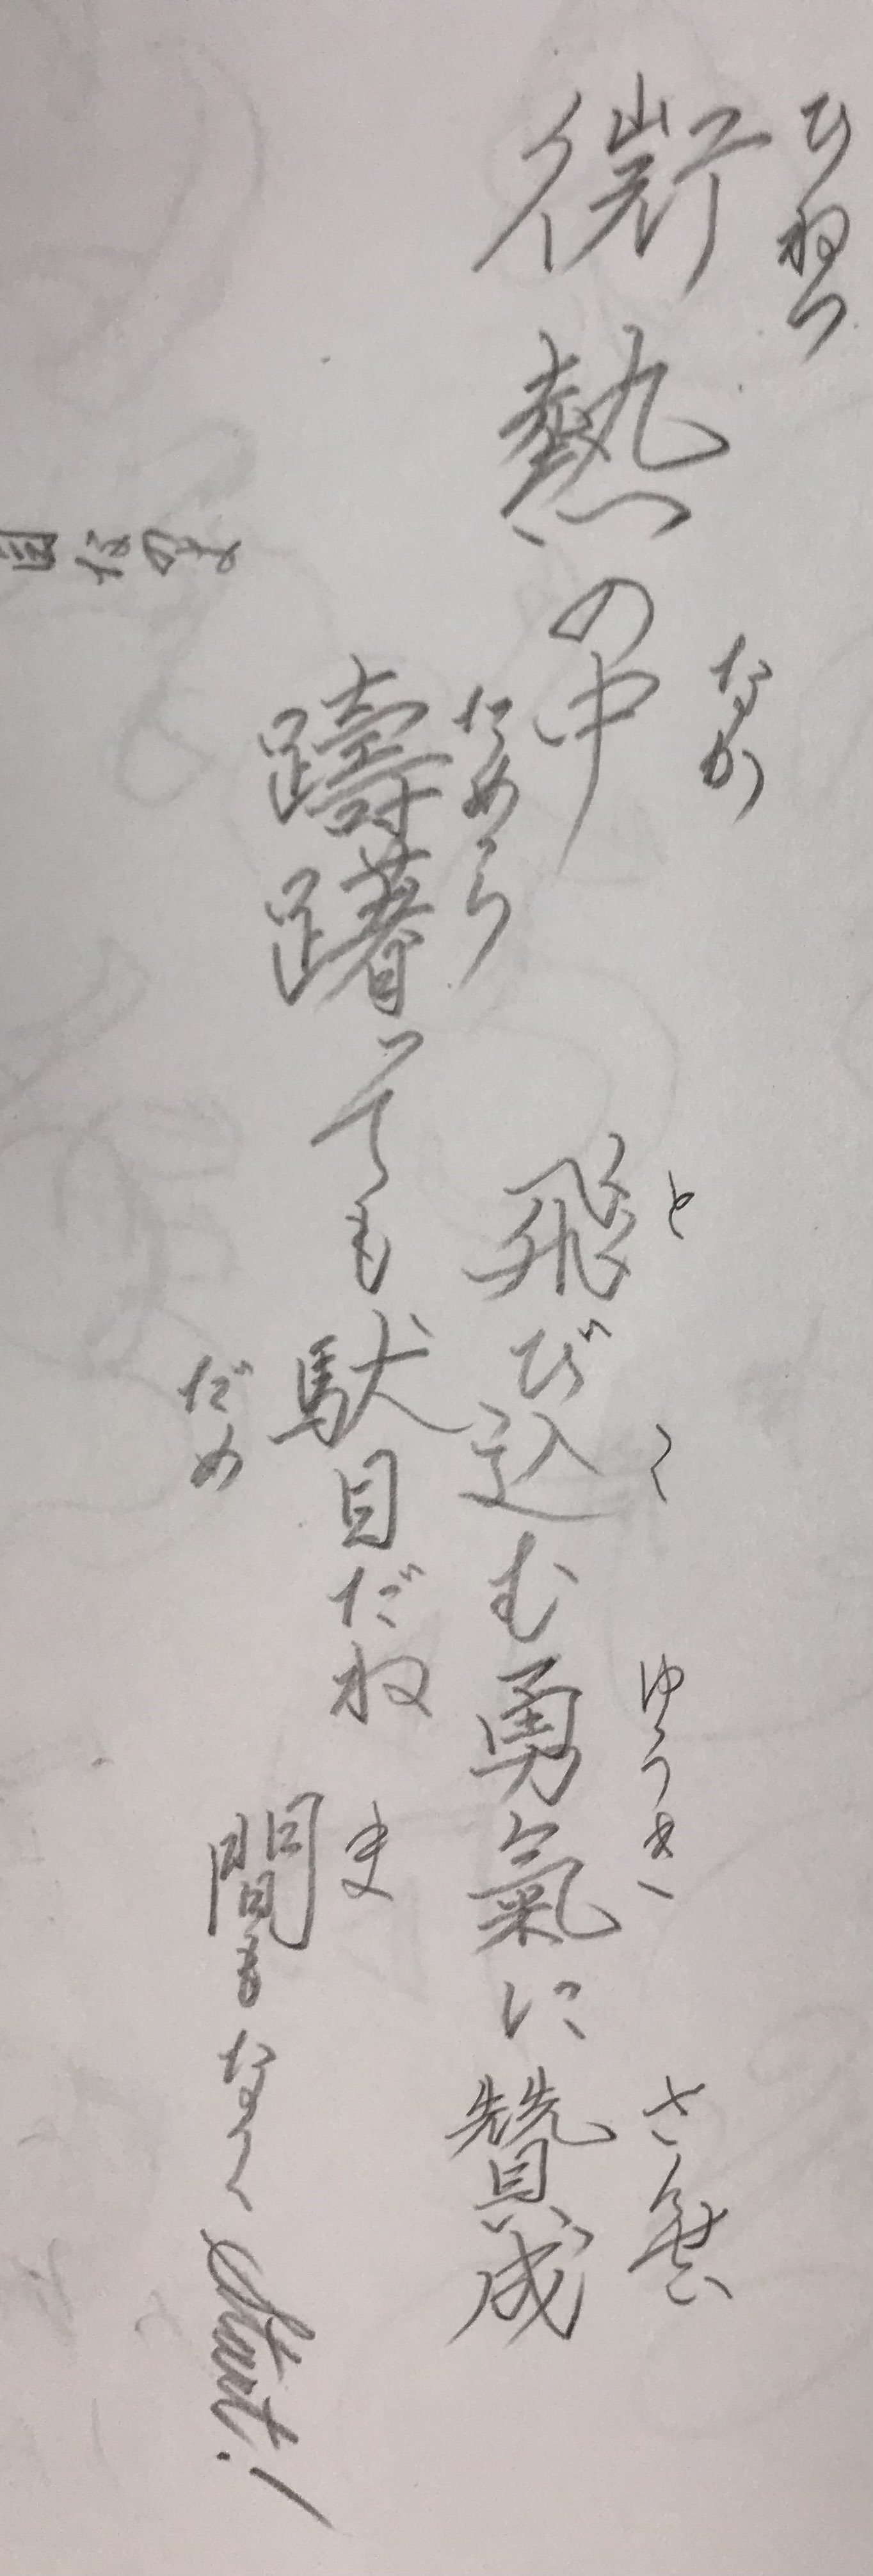 微熱の中
ひねつ
なか
躊躇っても駄目だね
ためら
だめ
飛び込む勇氣に贊成
と
こ
ゆうき
さんせい
間もなくStart!
ま